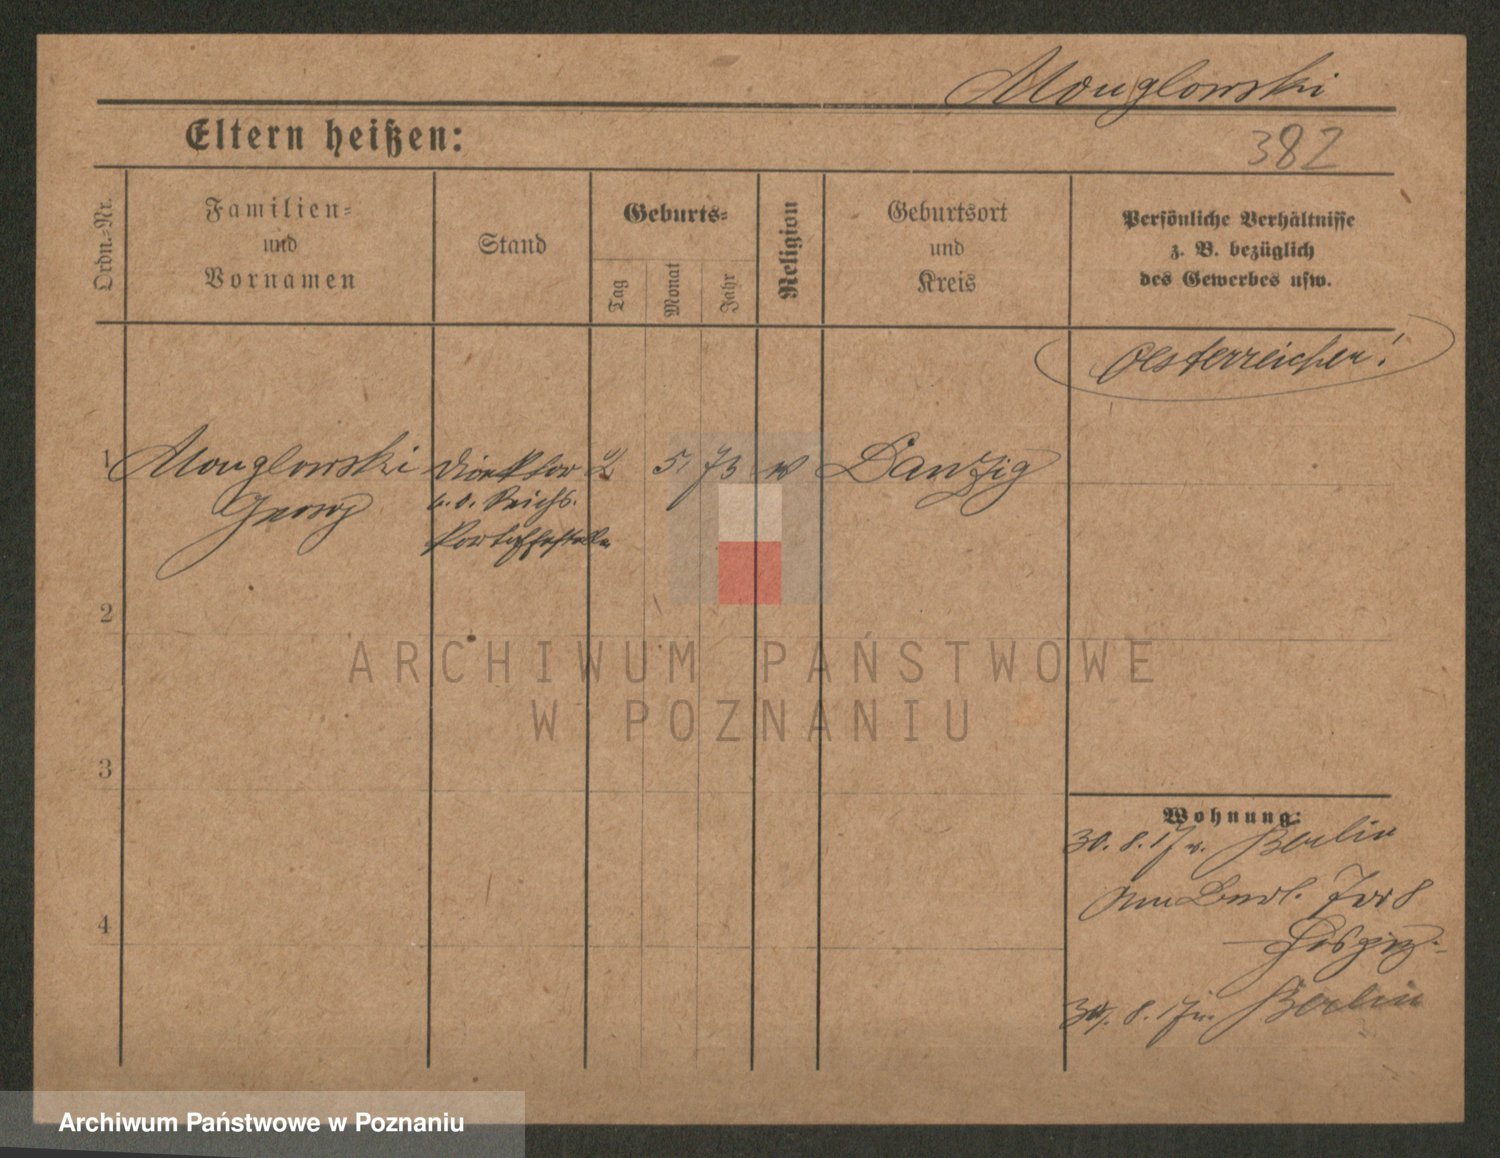 Monglowski
Eltern heißen:
382
Ordn.-Nr.
Familien-
und
Vornamen
Stand
Geburts-
Tag
Monat
Jahr
Religion
Geburtsort
und
Kreis
Persönliche Verhältnisse
z. B. bezüglich
des Gewerbes usw.
Oesterreicher!
1 Monglowski Direktor 2 5. 73 Danzig
Georg Reichs.
Kartoffelstelle
2
3
4
Wohnung:
30. 8. 17 v. Berlin
8
Hospiz
8. 17 n. Berlin
ARCHIWUM PAŃSTWOWE
W POZNANIU
Archiwum Państwowe w Poznaniu